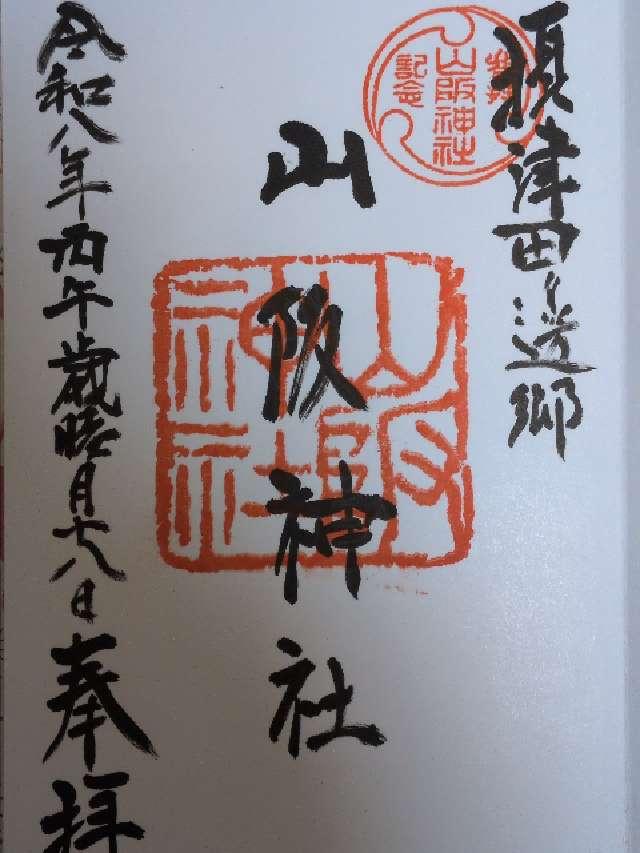 摂津田邊郷
参拝
山阪神社
記念
山阪神社
山阪神社
令和八年丙午歳睦月十八日奉拝